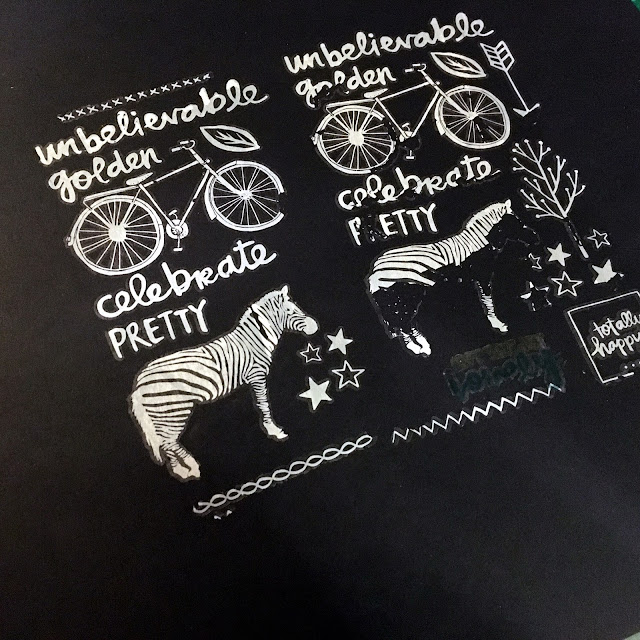 unbelievable
golden
celebrate
PRETTY
unbelievable
golden
celebrate
PRETTY
totally
happy